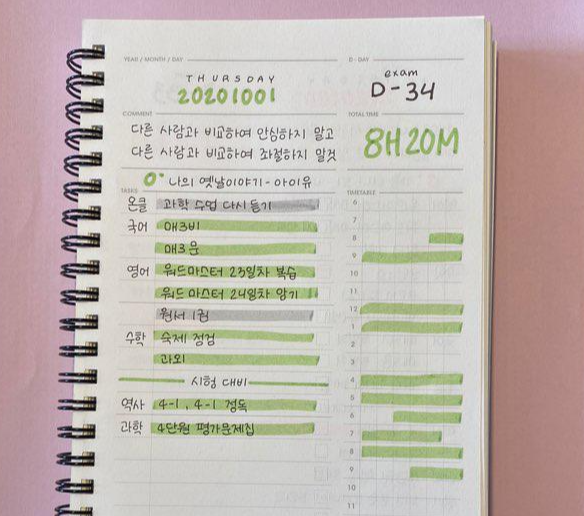 YEAR / MONTH / DAY
D-DAY
THURSDAY
20201001
exam
D-34
COMMENT
TOTAL TIME
다른 사람과 비교하여 안심하지 말고
다른 사람과 비교하여 좌절하지 말것
8H20M
나의 옛날이야기 - 아이유
TASKS
TIMETABLE
온클 과학 수업 다시 듣기
국어 매3비
매3문
영어 워드마스터 23일차 복습
워드마스터 24일차 암기
원서 1권
수학 숙제 점검
과외
시험 대비
역사 4-1, 4-1 정독
과학 4단원 평가문제집
6
7
8
9
10
11
12
1
2
3
4
5
6
7
8
9
10
11